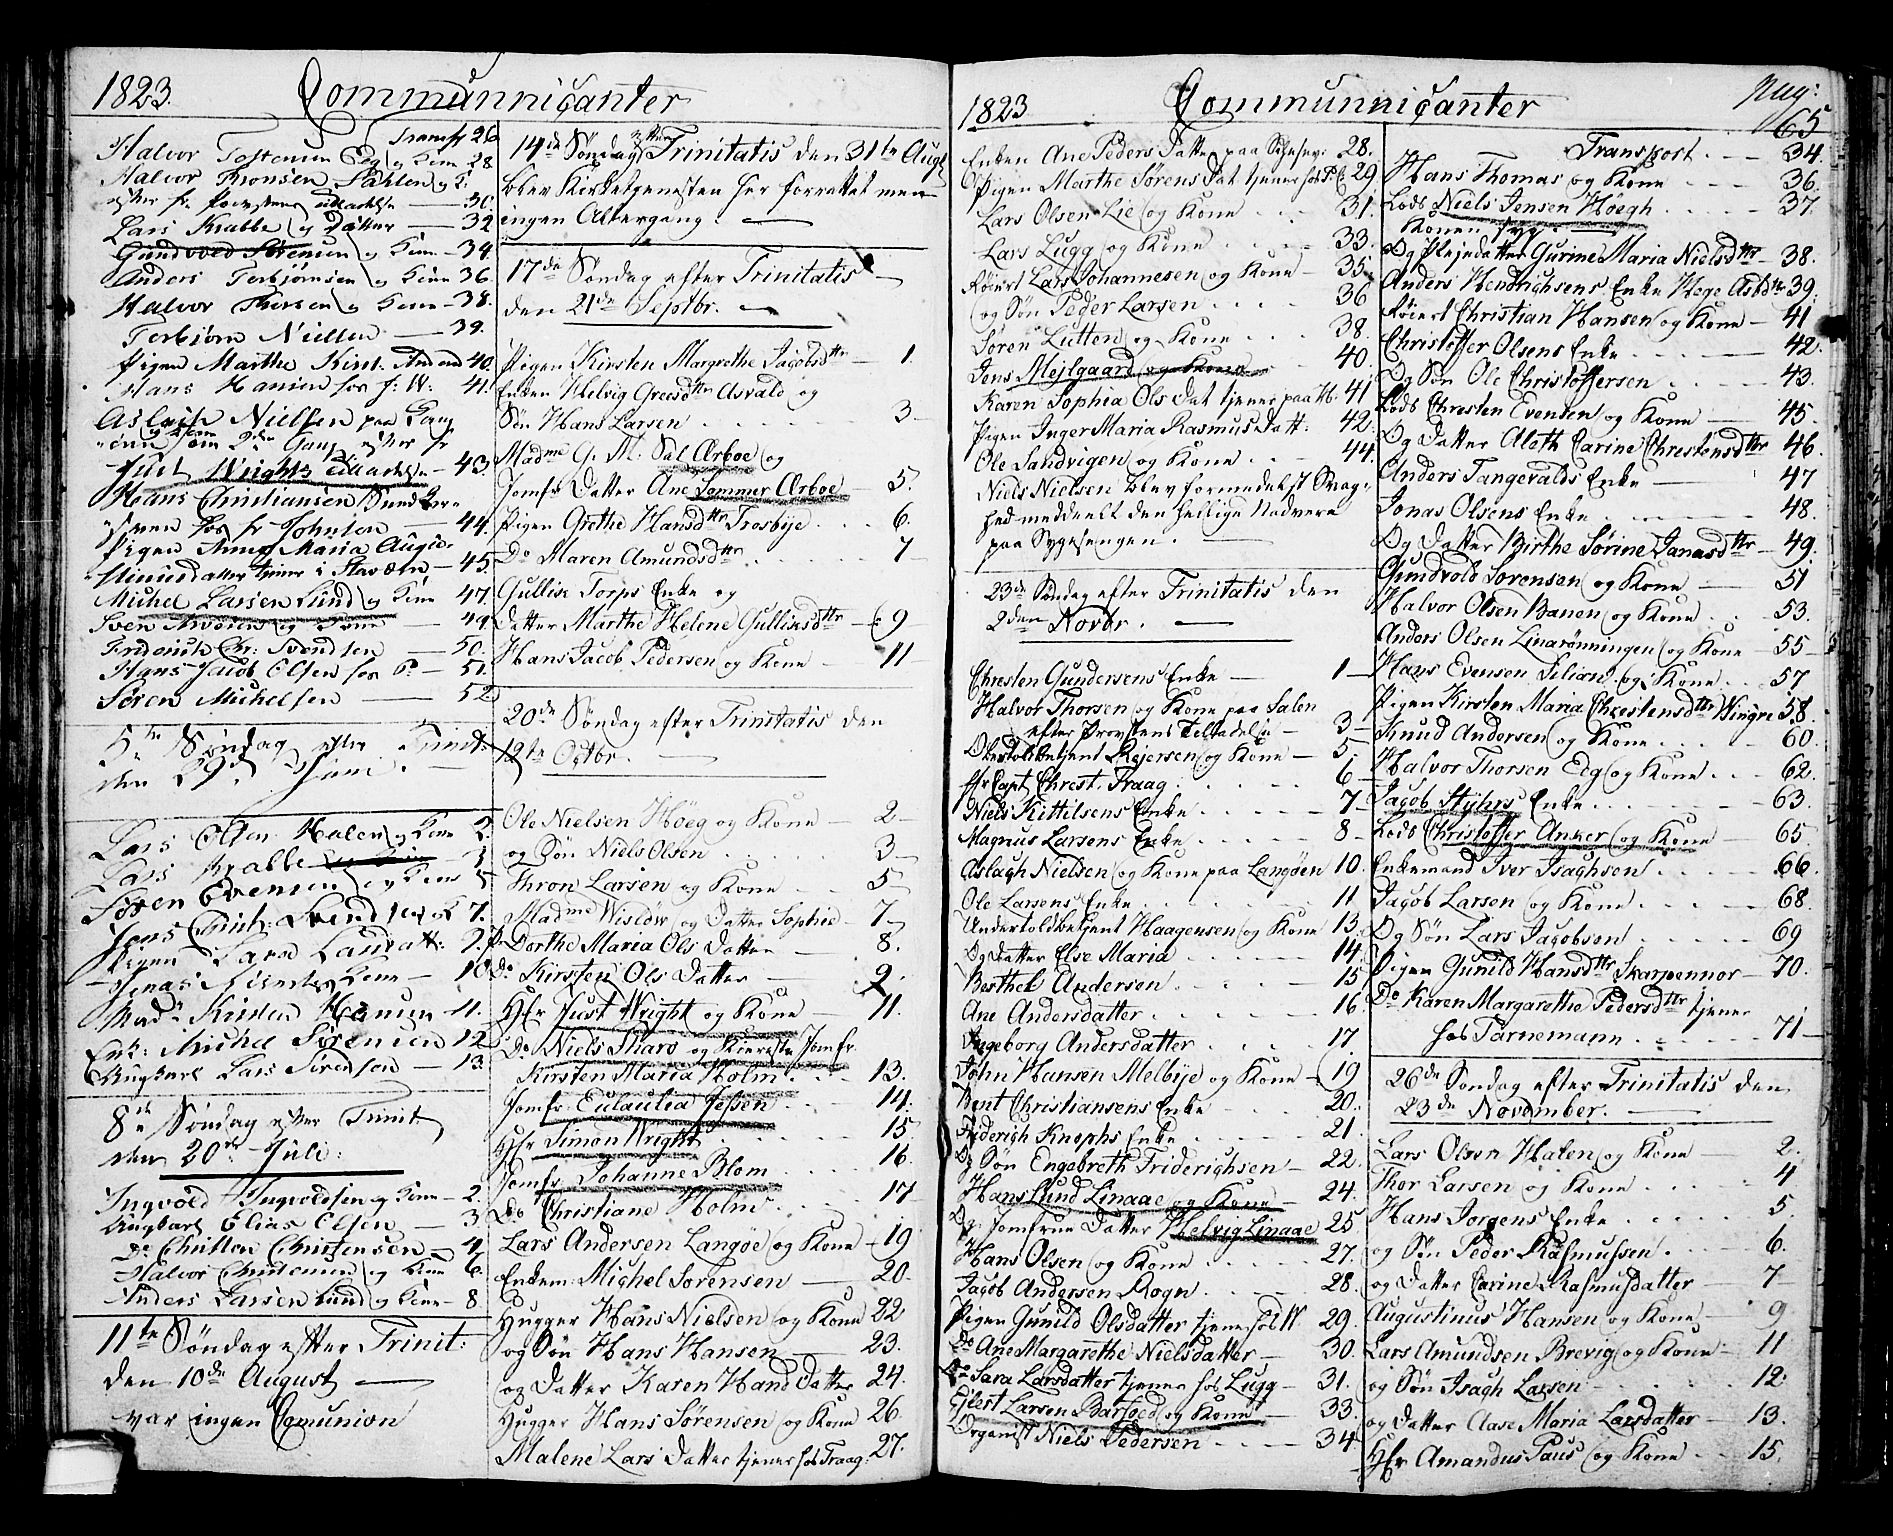 1823.
Communnicanter
Transp 26
Halvor Tostensen Eeg og Kone 28
Halvor Thronsen Sahlen og K:
efter Hr Provstens Tilladelse — 30.
Lars Krabbe og Datter — 32
Gundvold Sørensen og Kone — 34.
Anders Torbjørnsen og Kone 36.
Halvor Thorsen og Kone — 38.
Torbjørn Nielsen — 39.
Pigen Marthe Kirst. 40.
Hans Hansen hos 41.
Aslach Nielsen paa Lang
2den Gang efter Hr
Just Wrights Tilladelse — 43.
Hans Christiansen
hos Hr Johnson — 44.
Pigen Anne Maria
datter tiener i Staværn — 45.
Michel Larsen Lund og Kone 47.
Sven og Kone — 49.
Friderich Chr: Svendsen — 50.
Hans Jacob Elsen hos P. — 51.
Søren Michelsen — 52.
5te Søndag efter Trinit:
den 29de Juni. —
Lars Olsen Halen og Kone 2.
Lars Krabbe — 3
Søren Evensen og Kone 5
Jens Svendsen og K 7.
Pigen Lars datt:
Jonas og Kone — 10
Mad. Kirsten Hansen — 11.
Enk: Michel Sørensen 12
Ungkarl Lars Sørensen — 13.
8de Søndag efter Trinit.
den 20de Juli:
Ingvold Ingvoldsen og Kone — 2.
Ungkarl Elias Elsen — 3
Do Christen Christensen — 4.
Halvor Christensen og Kone 6.
Anders Larsen Lund og Kone — 8
11te Søndag efter Trinit:
den 10de August —
var ingen Comunion
14de Søndag efter Trinitatis den 31te Augt
blev Kirketjenesten her forrettet men
ingen Altergang. —
17de Søndag efter Trinitatis
den 21de Septbr. —
Pigen Kirsten Margrethe Jacobsdttr — 1.
Enken Helvig Greesdttr Asvald og
Søn Hans Larsen . . . . 3 —
Madme G. M. Sal Ærboe og
Jomfr Datter Ane Sommer Ærboe — 5.
Pigen Grethe Hansdttr Trosbye . . . 6.
Do Maren Amundsdttr . . . . 7
Gullik Torps Enke og
Datter Marthe Helene Gulliksdttr — 9
Hans Jacob Pedersen og Kone — 11 —
20de Søndag efter Trinitatis den
19te Octbr. —
Ole Nielsen Høeg og Kone — 2 —
og Søn Niels Olsen . . . 3 —
Thron Larsen og Kone . . 5 —
Madme Wisløv og Datter Sophie — 7 —
P. Dorthe Maria Ols Datter — 8.
Do Kirsten Ols Datter — 9.
HHr Just Wright og Kone — 11.
Do Niels Thars og Kiereste Jomfr.
Kirsten Maria Holm . . . 13.
Jomfr. Eulaulia Jessen . . . 14.
HHr Simon Wright . . . . 15.
Jomfr. Johanne Blom . . . 16.
Do Christiane Holm . . . 17 —
Lars Andersen Langøe og Kone — 19
Enkem: Michel Sørensen — 20.
Hugger Hans Nielsen og Kone 22
og Søn Hans Hansen — 23.
og Datter Karen Hans Datter 24.
Hugger Hans Sørensen og Kone 26.
Malene Lars Datter tjener hos Traag: 27.
1823
Communnicanter
Pag:
65
Enken Ane Peders Datter paa 28.
Pigen Marthe Sørens Dat tjener hos P. 29
Lars Olsen Lie og Kone . . . 31.
Lars Lugg og Kone . . . 33.
Røiert Lars Johannesen og Kone — 35
og Søn Peder Larsen . . . . 36
Søren Lutten og Kone . . . 38.
Jens Mejlgaard og Kone 40
Karen Sophia Ols Dat tjener paa H. 41
Pigen Inger Maria Rasmus Datt. 42.
Ole Sandvigen og Kone . . . 44.
Niels Nielsen blev formedelst Svag-
hed meddeelt den hellige Nadvere
paa Sygesengen. —
23de Søndag efter Trinitatis den
2den Novbr. —
Christen Gundersens Enke — 1 —
Halvor Thorsen og Kone paa Salen
efter Provstens Tilladelse — 3 —
Overtoldbetjent Rejersen og Kone — 5 —
Hr Capt. Chrest. Traag . . . . 6 —
Niels Kittilsens Enke . . . . . 7
Magnus Larsens Enke . . . . 8 —
Aslagh Nielsen og Kone paa Langøen 10.
Ole Larsens Enke . . . . 11
Undertoldbetjent Haagensen og Kone 13.
Og Datter Else Maria . . . . 14.
Berthel Andersen . . . . . 15
Ane Andersdatter . . . . . 16.
Ingeborg Andersdatter . . . . 17
John Hansen Melbye og Kone — 19
Bent Christiansens Enke . . . 20.
Friderigh Knophs Enke . . . . 21.
Og Søn Engebreth Friderighsen — 22.
Hans Lund Linaae og Kone — 24.
Og Jomfrue Datter Helvig Linaae 25
Hans Olsen og Kone . . . . 27.
Jacob Andersen Rogn . . . . 28.
Pigen Gunild Olsdatter tjener hos W. 29.
Do Ane Margarethe Nielsdatter — 30.
Do Sara Larsdatter tjener hos Lugg — 31.
Ejlert Larsen Barfoed og Kone — 33.
Organist Niels Pedersen . . . . 34
Transport . — 34.
Hans Thomas og Kone . . . 36.
Lods Niels Jensen Høegh . . . . 37.
Konen syg. —
Og Plejedatter Gurine Maria Nielsdttr — 38.
Anders Hendrighsens Enke Hege Asbdttr 39.
Røiert Christian Hansen og Kone — 41
Christoffer Olsens Enke . . . . 42.
Og Søn Ole Christoffersen . . . . 43.
Lods Chresten Evensen og Kone — 45.
Og Datter Aleth Carine Chrestensdttr 46.
Anders Tangevalds Enke — 47
Jonas Olsens Enke . . . . . 48.
Og Datter Birthe Sørine Janasdttr — 49.
Gundvold Sørensen og Kone — 51
Halvor Olsen Banen og Kone . . 53.
Anders Olsen Linarønningen og Kone — 55 —
Hans Evensen Silian og Kone . . . 57
Pigen Kirsten Maria Chrestensdttr Wingre 58.
Knud Andersen og Kone . . . . 60.
Halvor Thorsen Eeg og Kone . . . 62.
Jacob Styhrs Enke . . . . 63.
Lods Christoffer Anker og Kone . . 65.
Enkemand Iver Isaghsen . . . . 66.
Jacob Larsen og Kone . . . . 68.
Og Søn Lars Jacobsen . . . . 69
Pigen Gunild Hansdttr Skarpennor — 70.
Do Karen Margarethe Pedersdttr tjener
hos Tarnemann . . . . . 71 —
26de Søndag efter Trinitatis den
23de November. —
Lars Olsen Halen og Kone — 2.
Thor Larsen og Kone . . . . 4
Hans Jorgens Enke . . . . . 5.
og Søn Peder Rasmussen . . . . 6.
og Datter Carine Rasmusdatter — 7 —
Augustinus Hansen og Kone — 9.
Lars Amundsen Brevig og Kone — 11
og Søn Isagh Larsen . . . . . 12.
og Datter Aase Maria Larsdatter — 13.
HHr Amandus Paus og Kone — 15.